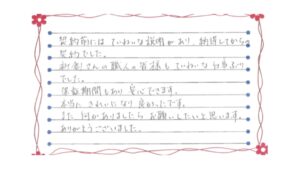 契約前にはていねいな説明があり、納得してからの
契約でした。
社長さんの職人の皆様もていねいな仕事ぶり
でした。
保証期間もあり安心できます。
本当にきれいになり良かったです。
また、何かありましたらお願いしたいと思います。
ありがとうございました。